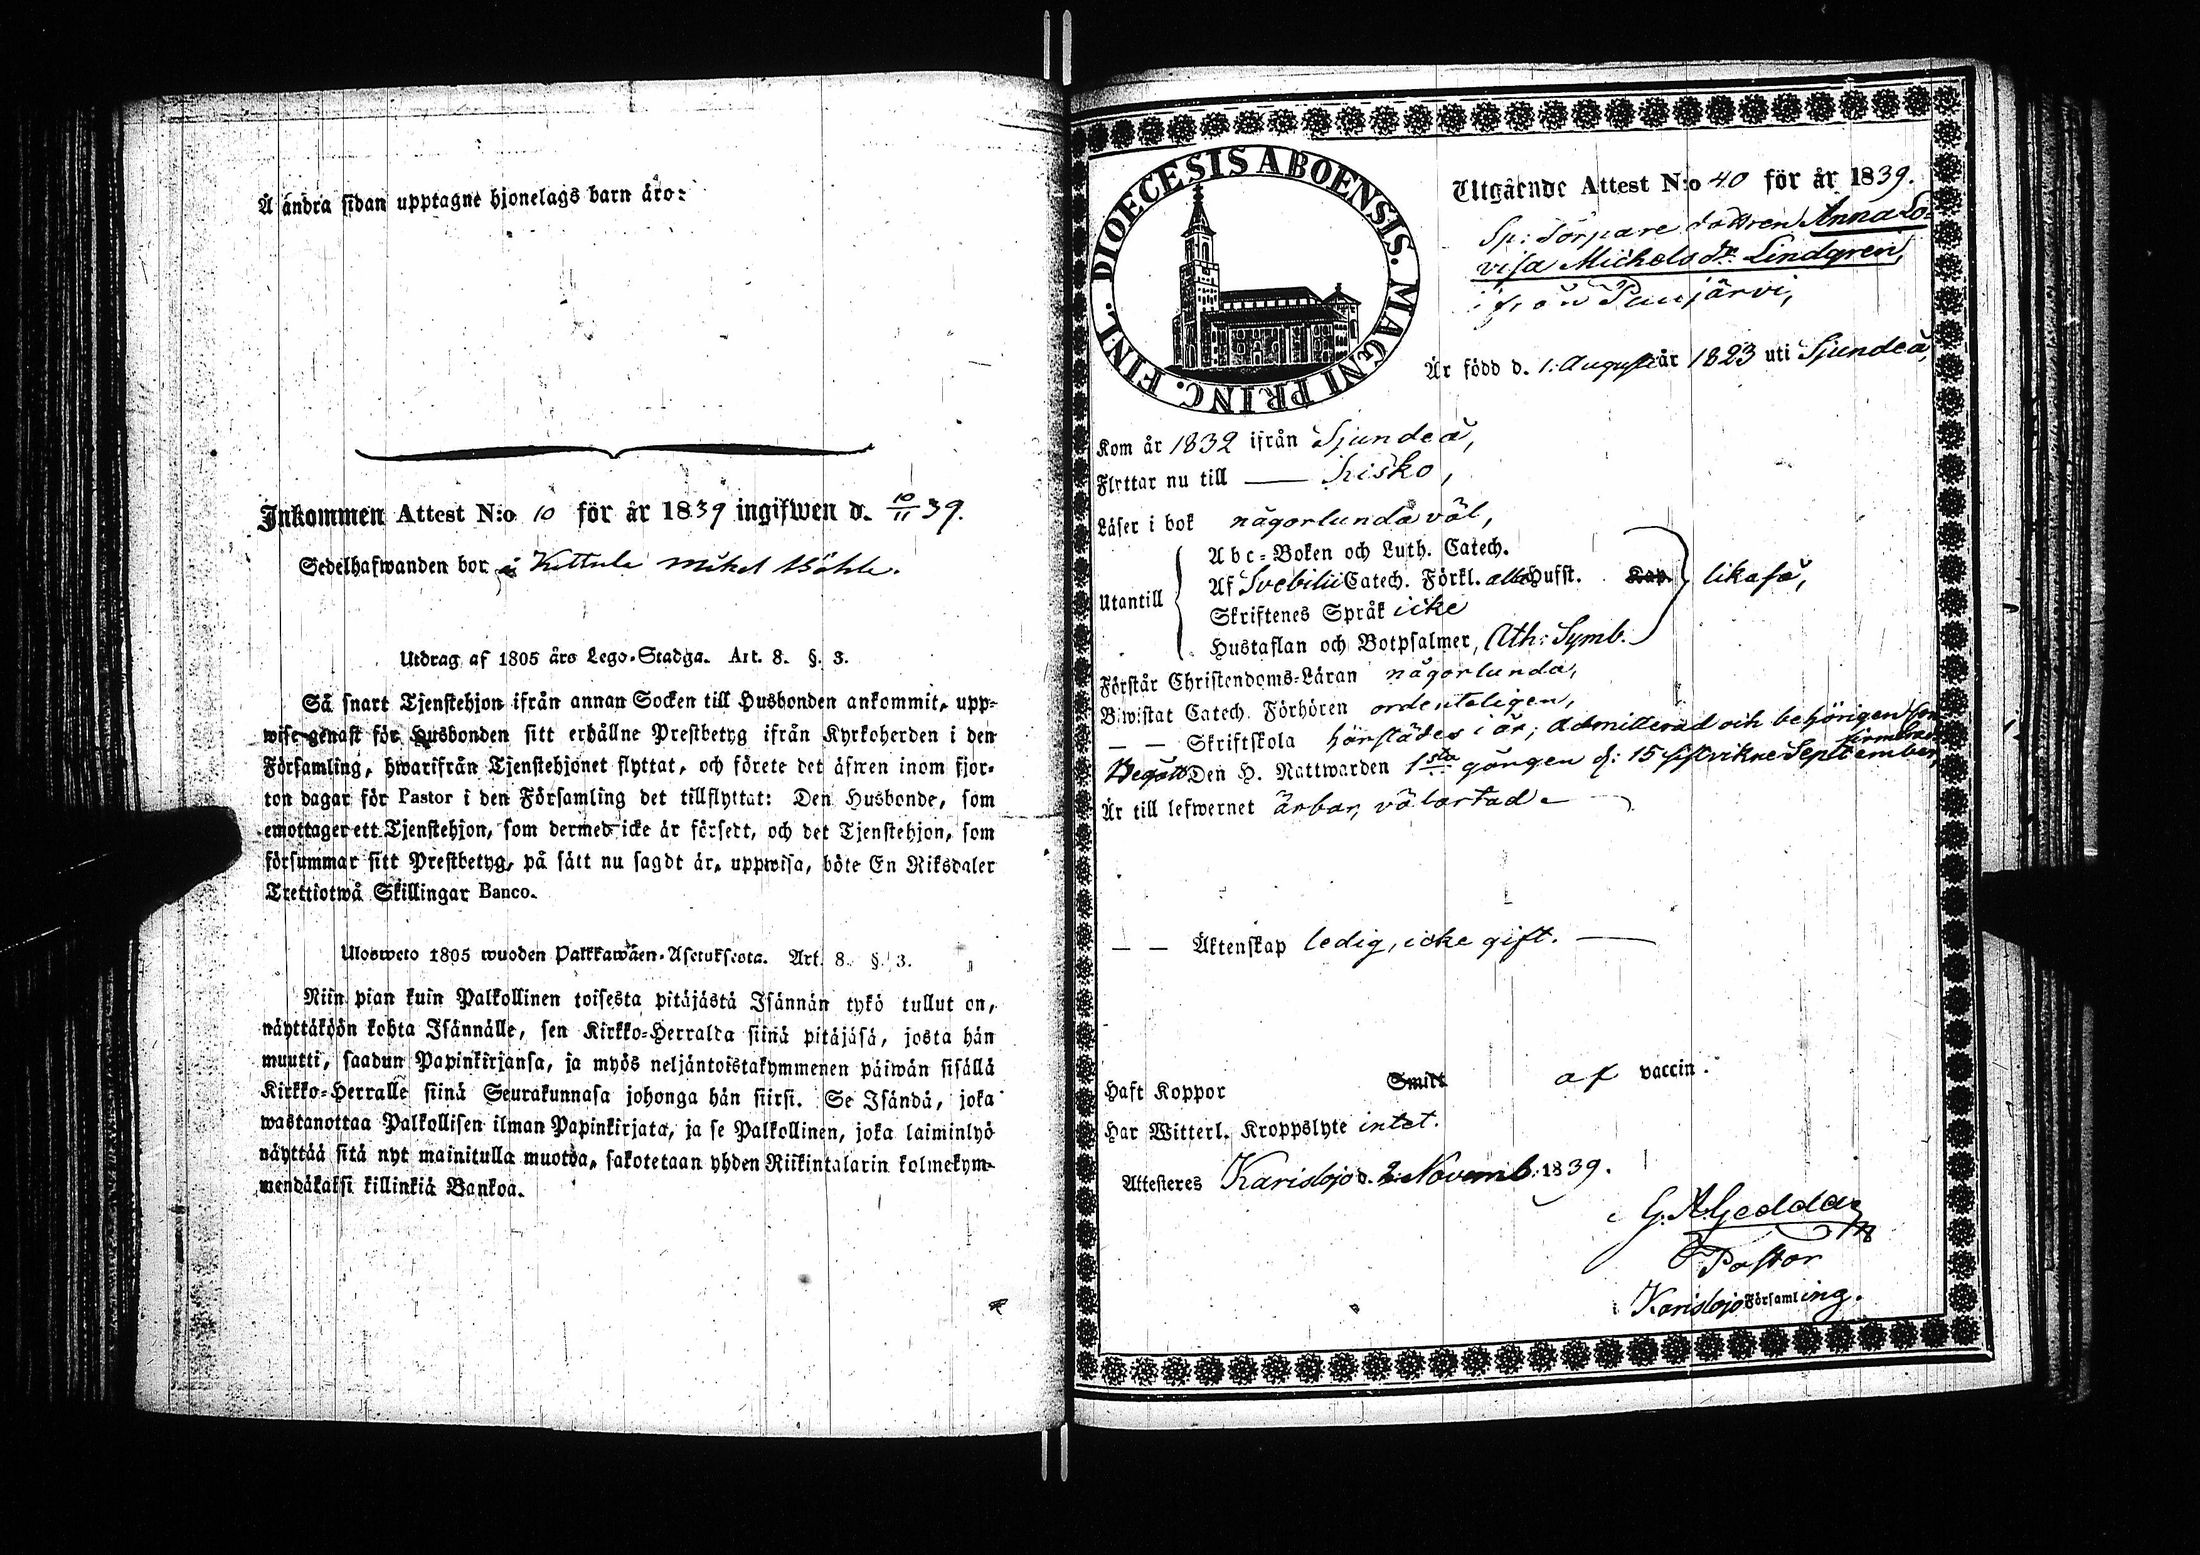 Å andra sidan upptagne hjonelags barn äro:
Inkommen Attest N:o 10 för år 1839 ingifwen d. 10/11 39.
Sedelhafwanden bor å Kettula
Utdrag af 1805 års Lego-Stadga. Art. 8. §. 3.
Så snart Tjenstehjon ifrån annan Socken till Husbonden ankommit, upp-
wise genast för Husbonden sitt erhållne Prestbetyg ifrån Kyrkoherden i den
Församling, hwarifrån Tjenstehjonet flyttat, och förete det äfwen inom fjor-
ton dagar för Pastor i den Församling det tillflyttat: Den Husbonde, som
emottager ett Tjenstehjon, som dermed icke är försedt, och det Tjenstehjon, som
försummar sitt Prestbetyg, på sätt nu sagdt är, uppwisa, böte En Riksdaler
Trettiotwå Skillingar Banco.
Ulosweto 1805 wuoden Palkkawäen-Asetuksesta. Art. 8. §. 3.
Niin pian kuin Palkollinen toisesta pitäjästä Isännän tykö tullut on,
näyttäköön kohta Isännälle, sen Kirkko-Herralda siinä pitäjäsä, josta hän
muutti, saadun Papinkirjansa, ja myös neljäntoistakymmenen päiwän sisällä
Kirkko-Herralle siinä Seurakunnasa johonga hän siirsi. Se Isändä, joka
wastanottaa Palkollisen ilman Papinkirjata, ja se Palkollinen, joka laiminlyö
näyttää sitä nyt mainitulla muotoa, sakotetaan yhden Riikintalarin kolmekym-
mendäkaksi killinkiä Bankoa.
DIOECESIS ABOENSIS. MAGNI PRINC. FINL.
Utgående Attest N:o 40 för år 1839.
Sp: Torpare dottren Anna Lo-
visa Michelsdr. Lindgren,
ifrån Puujärvi,
Är född d. 1. Augusti år 1823 uti Sjundeå,
Kom år 1832 ifrån Sjundeå,
Flyttar nu till — Kisko,
Läser i bok någorlunda väl,
Utantill
Abc-Boken och Luth. Catech.
Af Svebilii Catech. Förkl. alla Hufst. Kap. likaså,
Skriftenes Språk icke
Hustaflan och Botpsalmer, Ath: Symb.
Förstår Christendoms-Läran någorlunda,
Biwistat Catech. Förhören ordenteligen,
— — Skriftskola härstädes i år; Admitterad och behörigen con-
firmerad
Begått Den H. Nattwarden 1sta gången d: 15 sistvikne September,
Är till lefwernet ärbar, välartad —
— — Äktenskap ledig, icke gift. —
Haft Koppor Smitt af vaccin.
Har Witterl. Kroppslyte intet.
Attesteres Karislojo d. 2. Novemb. 1839.
G. A. Gedda
Pastor
i Karislojo Församling.